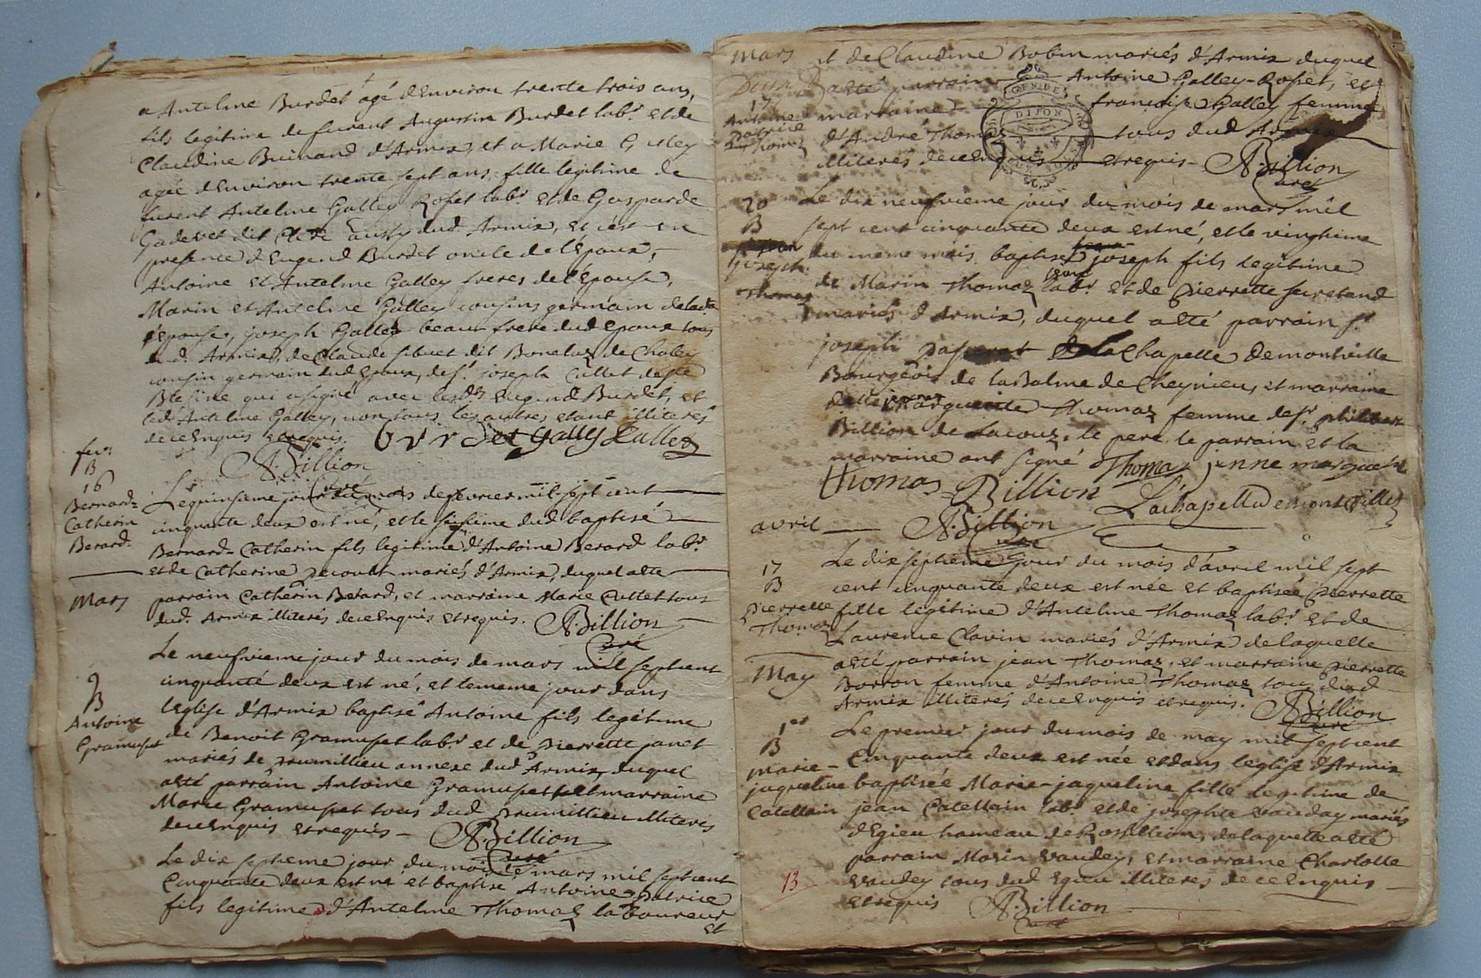 a Anteline Burdet âgé d'Environ trente trois ans,
fils legitime de furent Augustin Burdet labr. et de
Claudine Buinand d'Armix, et a Marie Galley
agée d'Environ trente sept ans fille legitime de
furent Anteline Galley Rosset labr. et de Gasparde
dud. Armix, et c'est en
presence d'Eugend Burdet oncle de l'Epoux,
Antoine et Anteline Galley freres de l'Epouse,
Marin et Anteline Galley cousins germain de ladte
Epouse, joseph Galley beau frere dud Epoux tous
dud. Armix, de Claude dit de
cousin germain dud Epoux, de sr. joseph Cullet de
qui a signé avec lesds. Eugend Burdet, et
led. Anteline Galley, non tous les autres etant illiteres
de ce Enquis et requis. Burdet Gally Culley
fevr.
B
16
Bernard-
Catherin
Berard.
A. Billion
Curé
Le quinsieme jour du mois de fevrier mil sept cent
cinquante deux est né, et le sesieme dud. baptisé
Bernard-Catherin fils legitime d'Antoine Berard labr.
et de Catherine mariés d'Armix, duquel a ete
parrain Catherin Berard, et marraine Marie Cullet tous
dud. Armix illiterés de ce Enquis et requis. A. Billion
Curé
Mars
9
B
Antoine
Gramuset
Le neufvieme jour du mois de mars mil sept cent
cinquante deux est né, et le meme jour dans
l'Eglise d'Armix baptisé Antoine fils legitime
de Benoit Gramuset labr. et de Pierrette janet
mariés de prumillieu annexe dud. Armix, duquel
a eté parrain Antoine Gramuset et marraine
Marie Gramuset tous dud. prumillieu illiteres
de ce Enquis et requis - A. Billion
Curé
Le dix septieme jour du mois de mars mil sept cent
Cinquante deux est né et baptisé Antoine-Patrice
fils legitime d'Anteline Thomaz laboureur
et
Mars
17
Antoine
Patrice
Thomaz
et de Claudine Bobin mariés d'Armix duquel
a eté parrain Antoine Galley-Rosset, et
marraine françoise Galley femme
d'André Thomaz tous dud. Armix
illiterés de ce Enquis et requis - A. Billion
Curé
DIJON
20
B
joseph
Thomaz
Le dix neufvieme jour du mois de mars mil
sept cent cinquante deux est né, et le vingtieme
du meme mois baptisé joseph fils legitime
de Marin Thomaz labr. et de Pierrette secretand
mariés d'Armix, duquel a eté parrain sr.
joseph de la Chapelle de montvielle
Bourgeois de la Balme de Cheynieu, et marraine
Marguerite Thomaz femme de sr. philibert
Billion de Lacoux. le pere le parrain et la
marraine ont signé Thomaz jenne marguerit
thomas Billion Lachapelle de montvillez
A. Billion
Curé
avril
17
B
Pierrette
Thomaz
Le dix septieme jour du mois d'avril mil sept
cent cinquante deux est née et baptisée Pierrette
fille legitime d'Anteline Thomaz labr. et de
Laurence Clavin mariés d'Armix de laquelle
a eté parrain jean Thomaz, et marraine Pierrette
Borron femme d'Antoine Thomaz tous dud.
Armix illiterés de ce Enquis et requis. A. Billion
Curé
May
1er
B
Marie-
jaqueline
Catellain
Le premier jour du mois de may mil sept cent
Cinquante deux est née et dans l'eglise d'Armix
baptisée Marie-jaqueline fille legitime de
jean Catellain labr. et de josephte vauday mariés
d'Egieu hameau de Rossillion, de laquelle a eté
parrain Marin vaudey, et marraine Charlotte
vaudey tous dud. Egieu illiteres de ce Enquis
et requis A. Billion
Curé
13